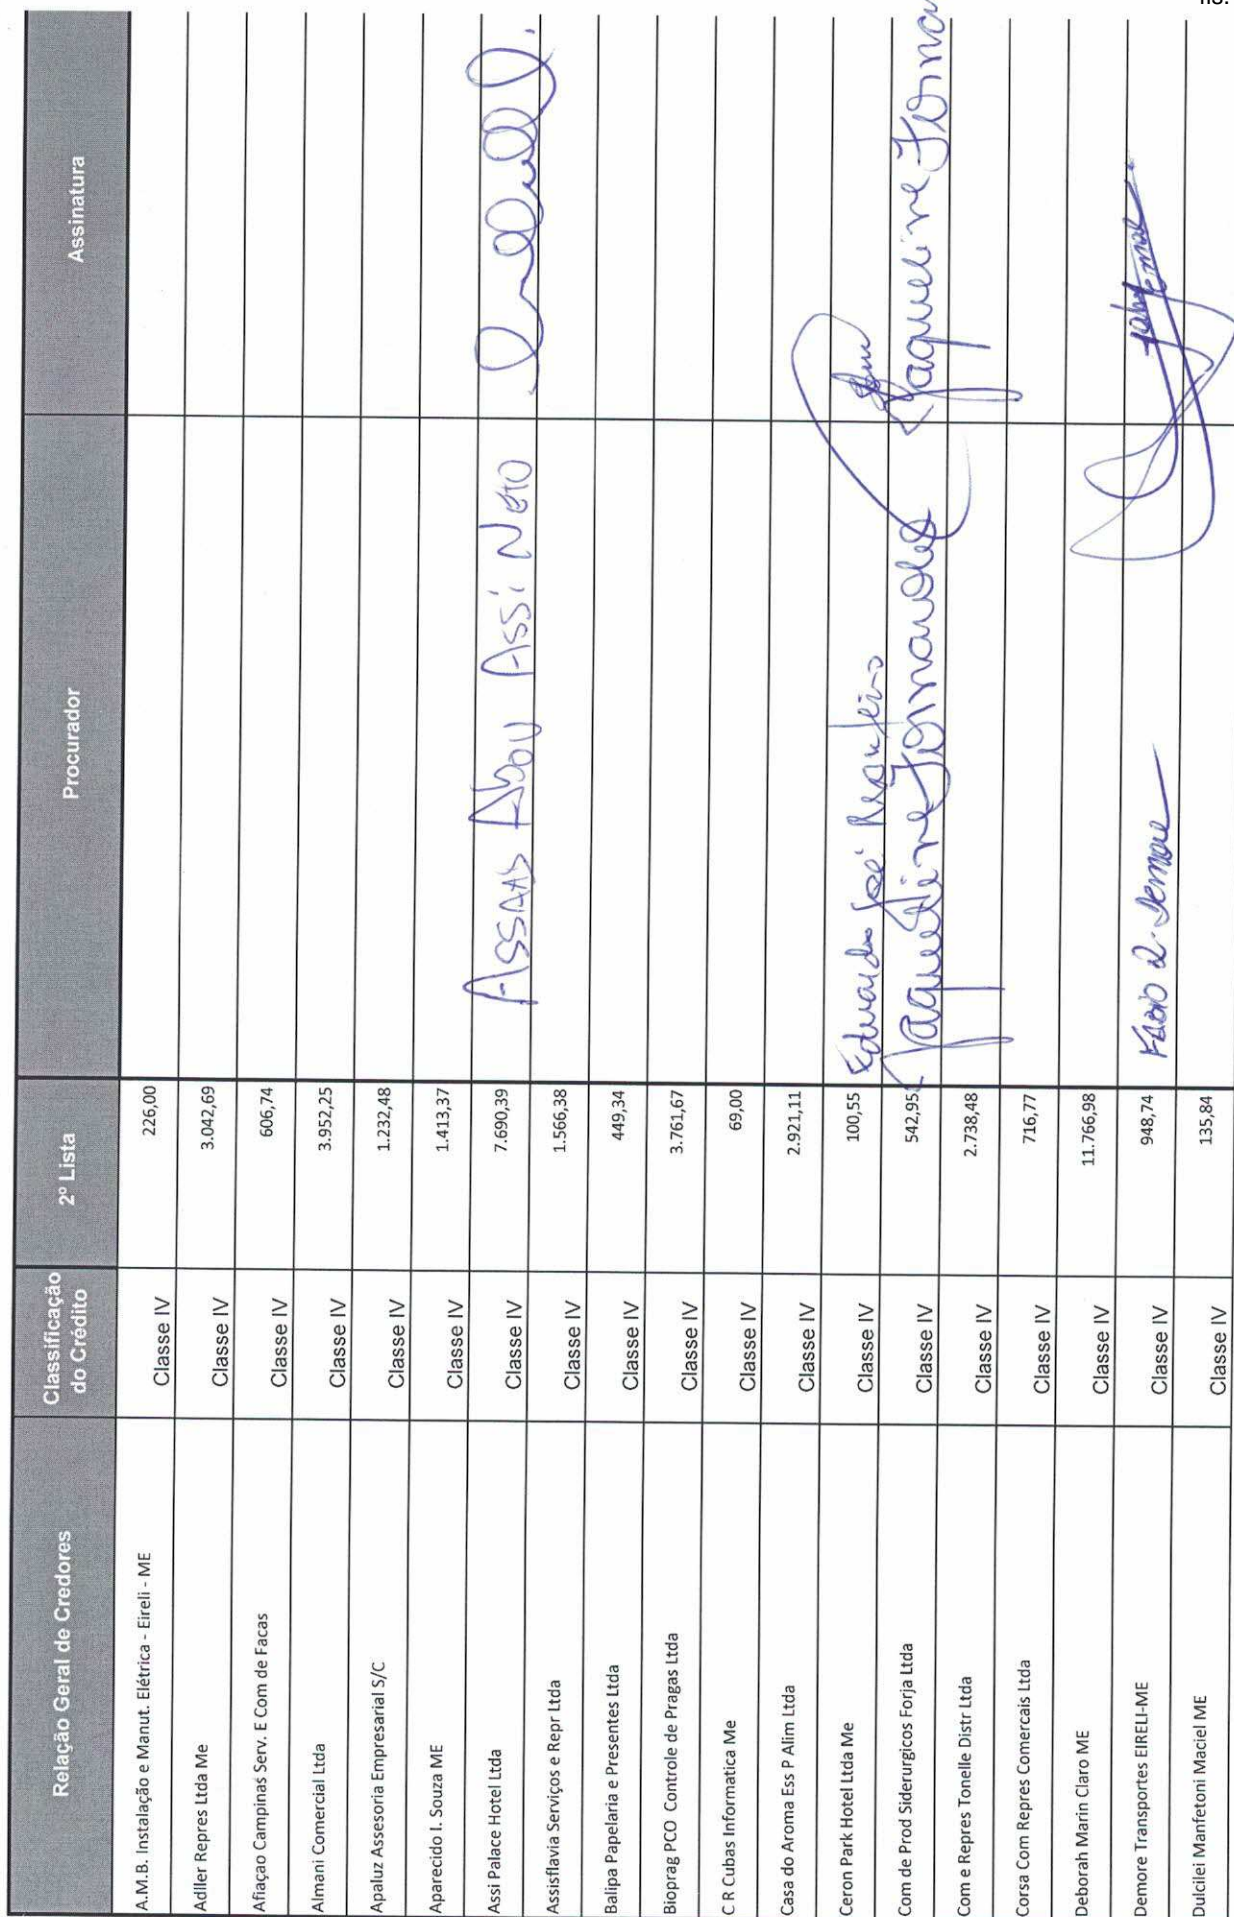 Relação Geral de Credores Classificação do Crédito 2º Lista Procurador Assinatura
A.M.B. Instalação e Manut. Elétrica - Eireli - ME Classe IV 226,00
Adller Repres Ltda Me Classe IV 3.042,69
Afiaçao Campinas Serv. E Com de Facas Classe IV 606,74
Almani Comercial Ltda Classe IV 3.952,25
Apaluz Assesoria Empresarial S/C Classe IV 1.232,48
Aparecido I. Souza ME Classe IV 1.413,37
Assi Palace Hotel Ltda Classe IV 7.690,39 Assaad Abou Assi Neto
Assisflavia Serviços e Repr Ltda Classe IV 1.566,38
Balipa Papelaria e Presentes Ltda Classe IV 449,34
Bioprag PCO Controle de Pragas Ltda Classe IV 3.761,67
C R Cubas Informatica Me Classe IV 69,00
Casa do Aroma Ess P Alim Ltda Classe IV 2.921,11
Ceron Park Hotel Ltda Me Classe IV 100,55 Eduardo José Monteiro
Com de Prod Siderurgicos Forja Ltda Classe IV 542,95 Jaqueline Fernandes Jaqueline
Com e Repres Tonelle Distr Ltda Classe IV 2.738,48
Corsa Com Repres Comercais Ltda Classe IV 716,77
Deborah Marin Claro ME Classe IV 11.766,98
Demore Transportes EIRELI-ME Classe IV 948,74 Fabio R. Demore
Dulcilei Manfetoni Maciel ME Classe IV 135,84